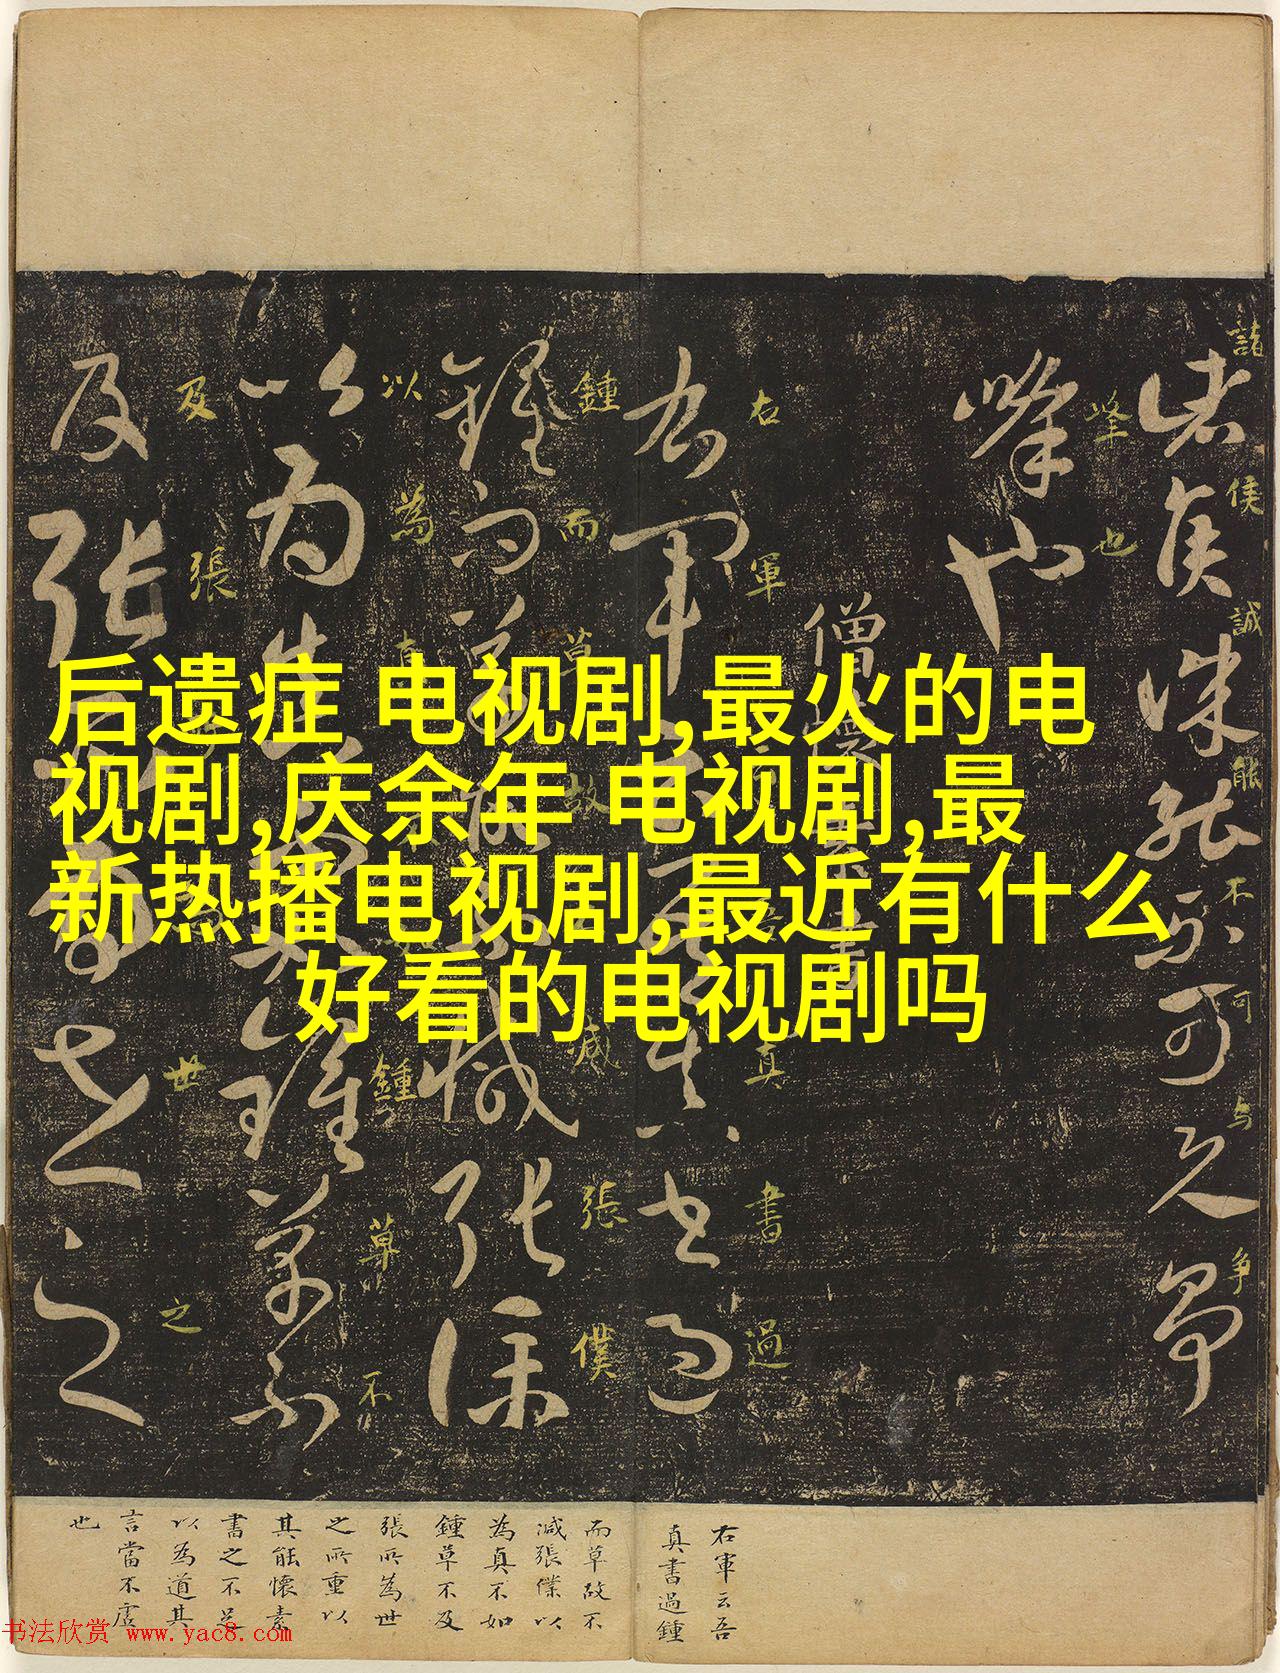 后遗症 电视剧,最火的电
视剧,庆余年 电视剧,最
新热播电视剧,最近有什么
好看的电视剧吗
峰也
右軍云吾真書過
鍾而草故不減張僕
以為真不如鍾草不
右軍云吾
真書過鍾
而草故不
減張僕以
為真不如
鍾草不及
張所為世
之所重以
其能懷素
書之不足
以為道其
言當不虛
也
书法欣赏 www.yac8.com